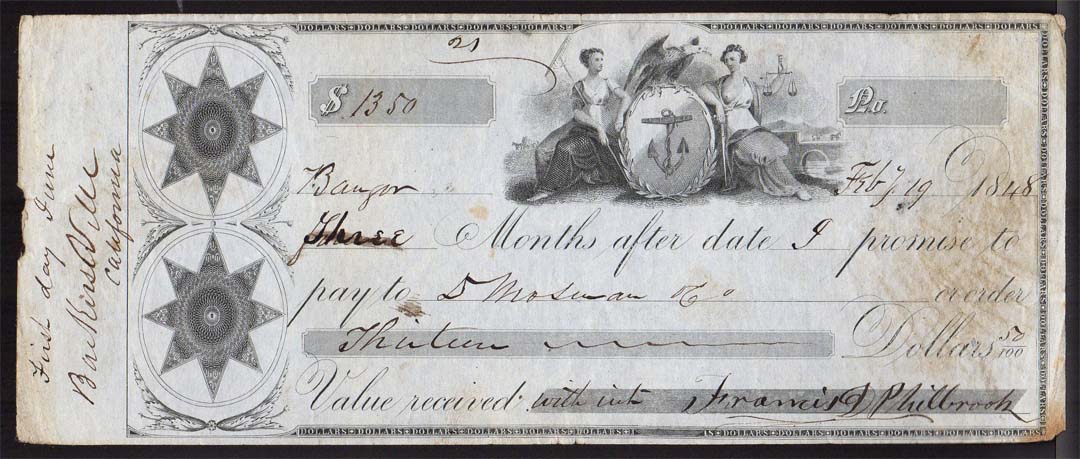 DOLLARS DOLLARS DOLLARS DOLLARS DOLLARS DOLLARS
21
$ 13 50
No.
Bangor Feby 19 1848
Three Months after date I promise to
pay to D Mosman & Co or order
Thirteen Dollars 50/100
Value received with int Francis D Philbrook
DOLLARS DOLLARS DOLLARS DOLLARS DOLLARS DOLLARS
First day June
California